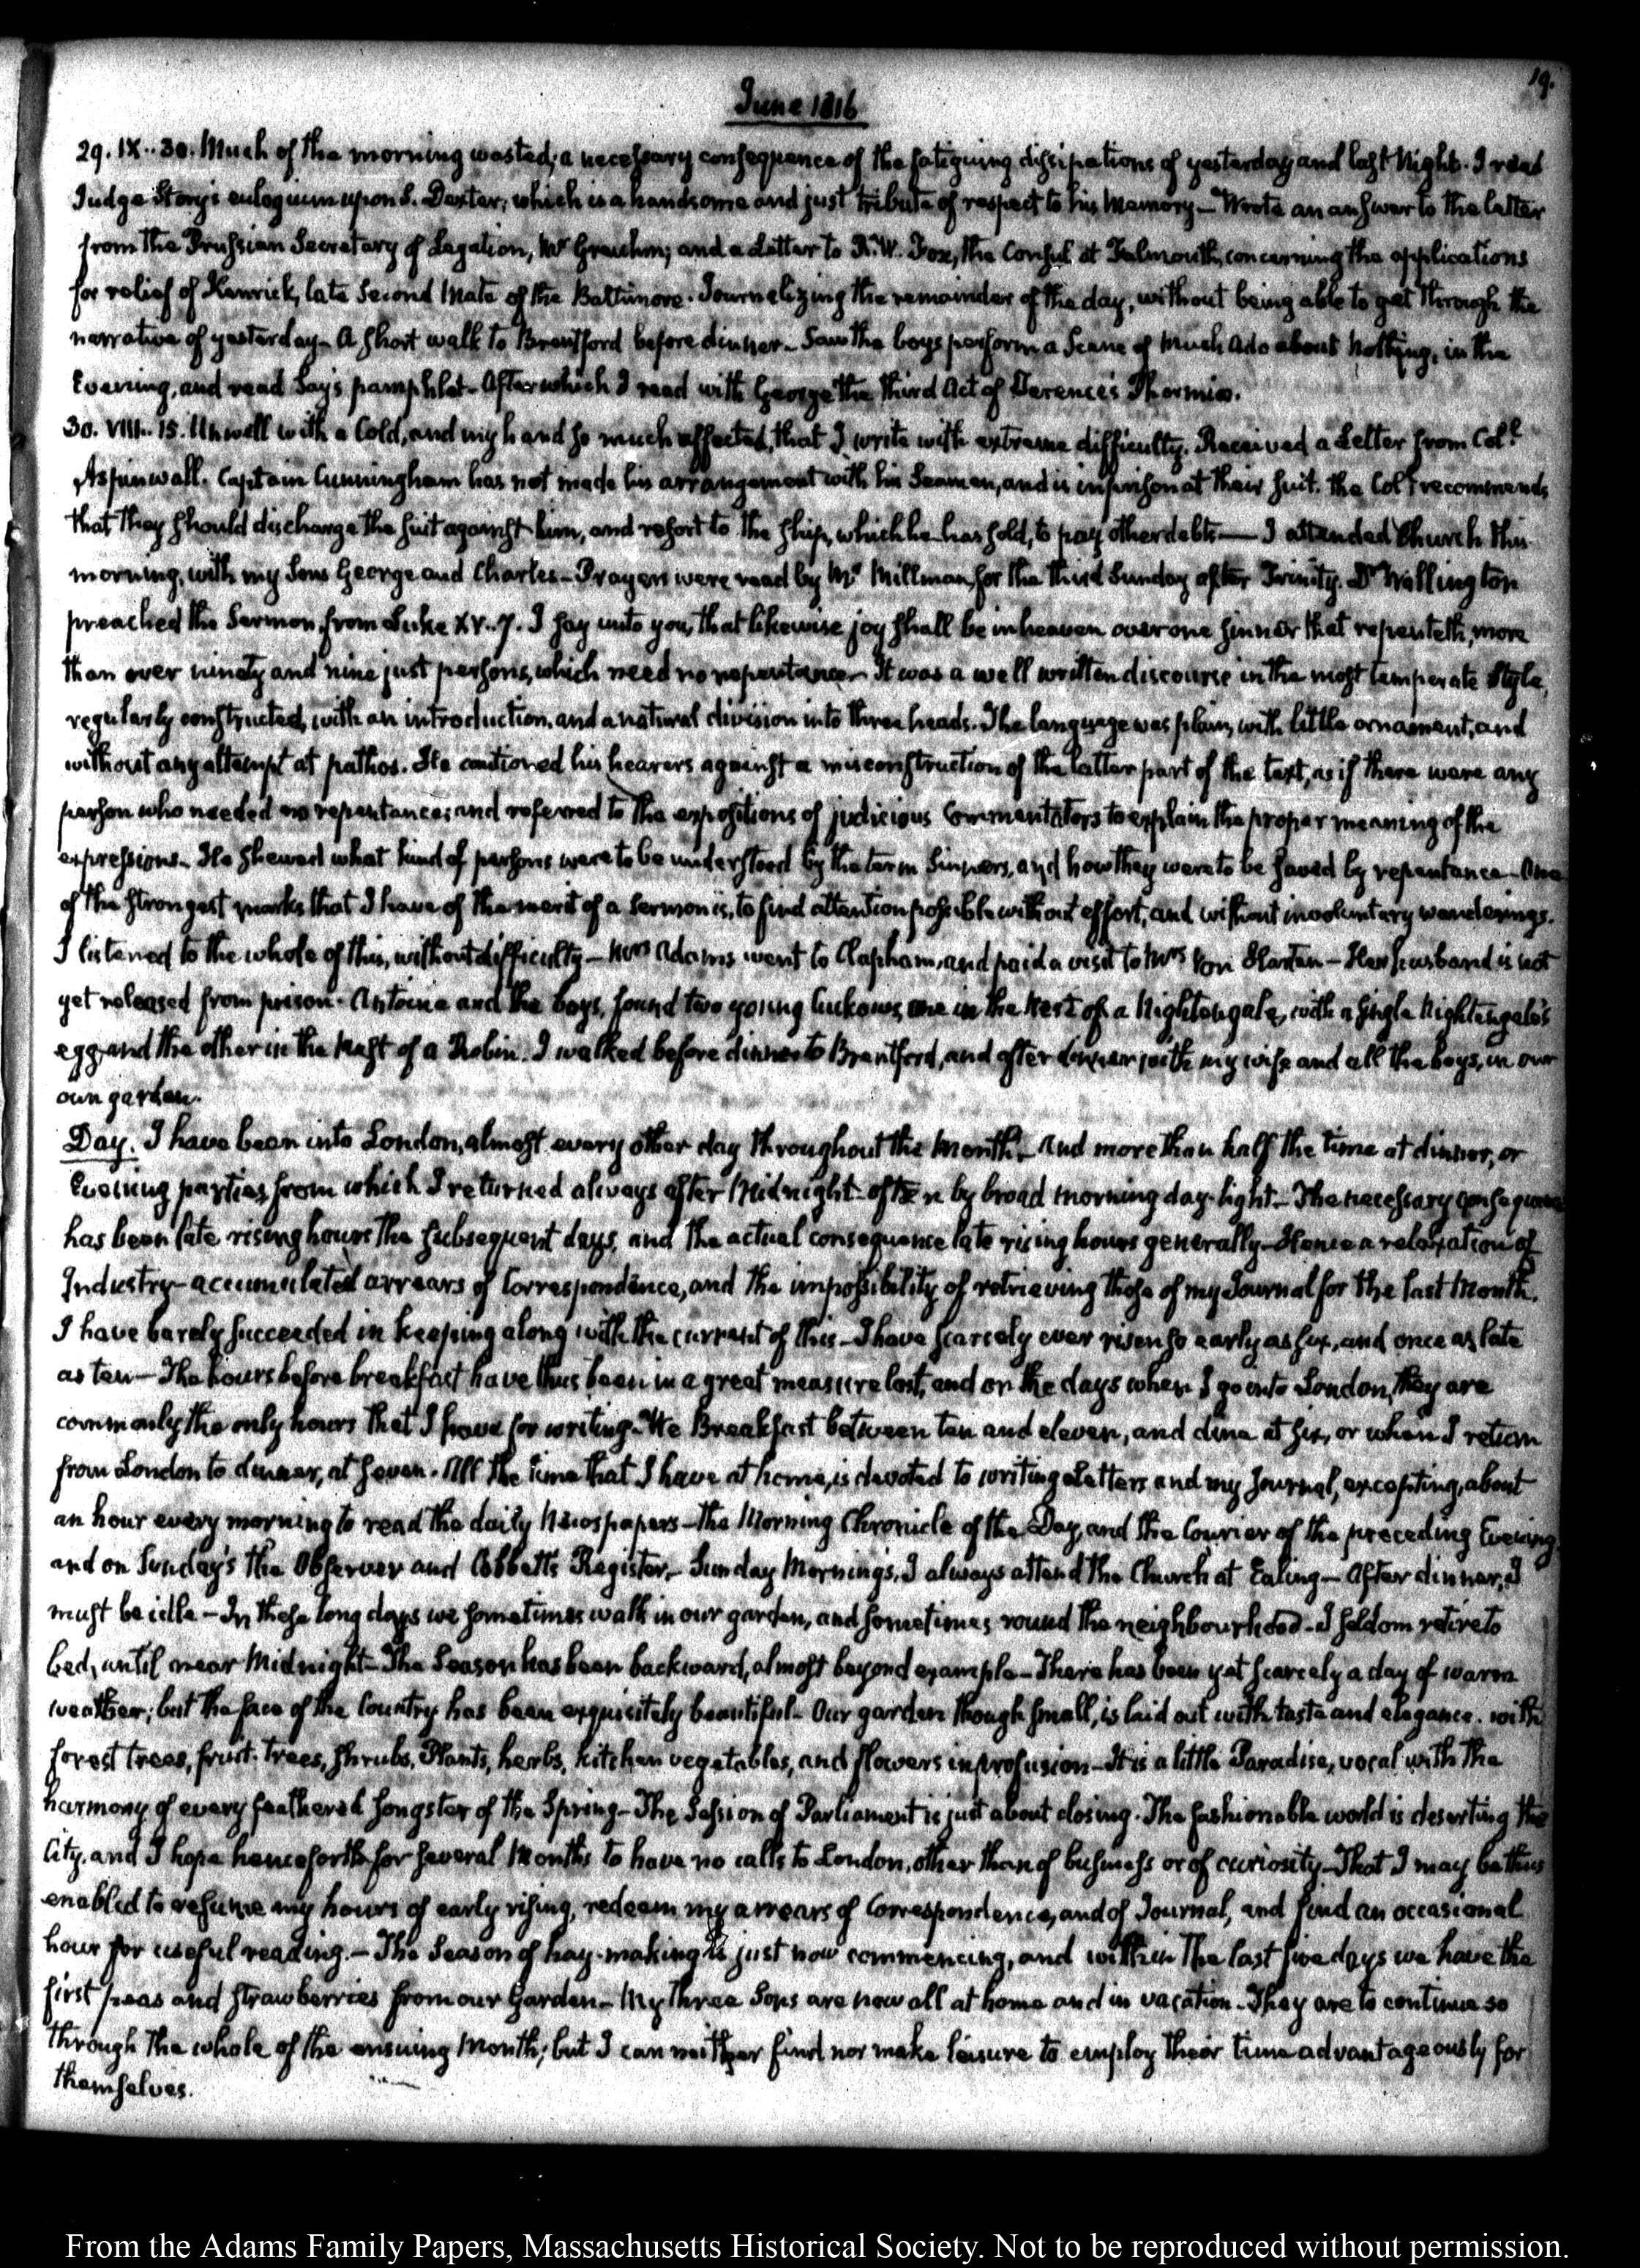 19.
June 1816
29. IX..30. Much of the morning wasted; a necessary consequence of the fatiguing dissipations of yesterday and last Night. I read
Judge Story's eulogium upon S. Dexter; which is a handsome and just tribute of respect to his Memory — Wrote an answer to the letter
from the Prussian Secretary of Legation, Mr Greuhm; and a Letter to R. W. Fox, the Consul at Falmouth, concerning the applications
for relief of Kenrick, late Second Mate of the Baltimore. Journalizing the remainder of the day, without being able to get through the
narrative of yesterday — A short walk to Brentford before dinner — Saw the boys perform a Scene of Much Ado about Nothing, in the
Evening, and read Say's pamphlet — After which I read with George the third Act of Terence's Phormio.
30. VIII..15. Unwell with a Cold, and my hand so much affected, that I write with extreme difficulty. Received a Letter from Coll
Aspinwall. Captain Cunningham has not made his arrangement with his Seamen, and is in prison at their suit. The Coll recommends
that they should discharge the suit against him, and resort to the ship, which he has sold, to pay other debts — I attended Church this
morning, with my Sons George and Charles — Prayers were read by Mr Millman, for the third Sunday after Trinity. Dr Wallington
preached the Sermon from Luke XV. 7. I say unto you, that likewise joy shall be in heaven over one sinner that repenteth, more
than over ninety and nine just persons, which need no repentance — It was a well written discourse in the most temperate style,
regularly constructed, with an introduction, and a natural division into three heads. The language was plain, with little ornament, and
without any attempt at pathos. He cautioned his hearers against a misconstruction of the latter part of the text, as if there were any
person who needed no repentance; and referred to the expositions of judicious Commentators to explain the proper meaning of the
expressions — He shewed what kind of persons were to be understood by the term Sinners, and how they were to be saved by repentance — One
of the strongest marks that I have of the merit of a Sermon is, to find attention possible without effort, and without involuntary wanderings.
I listened to the whole of this, without difficulty — Mrs Adams went to Clapham, and paid a visit to Mrs Von Harten — Her husband is not
yet released from prison. Antoine and the boys, found two young Cuckows, one in the Nest of a Nightengale, with a single Nightengale's
egg and the other in the Nest of a Robin. I walked before dinner to Brentford, and after dinner with my wife and all the boys, in our
own garden.
Day. I have been into London, almost every other day throughout the Month — And more than half the time at dinner, or
Evening parties, from which I returned always after Midnight — often by broad morning day-light — The necessary consequence
has been late rising hours the subsequent days, and the actual consequence late rising hours generally — Hence a relaxation of
Industry — accumulated arrears of Correspondence, and the impossibility of retrieving those of my Journal for the last Month.
I have barely succeeded in keeping along with the current of this — I have scarcely ever risen so early as six, and once as late
as ten — The hours before breakfast have thus been in a great measure lost, and on the days when I go into London, they are
commonly the only hours that I have for writing — We Breakfast between ten and eleven, and dine at six, or when I return
from London to dinner, at seven. All the time that I have at home, is devoted to writing Letters and my Journal, excepting, about
an hour every morning to read the daily Newspapers — The Morning Chronicle of the Day, and the Courier of the preceding Evening,
and on Sunday's the Observer and Cobbett's Register — Sunday Mornings, I always attend the Church at Ealing — After dinner, I
must be idle — In these long days we sometimes walk in our garden, and sometimes round the neighbourhood — I seldom retire to
bed, until near Midnight — The Season has been backward, almost beyond example — There has been yet scarcely a day of warm
weather; but the face of the Country has been exquisitely beautiful — Our garden though small, is laid out with taste and elegance. with
forest trees, fruit-trees, shrubs, Plants, herbs, kitchen vegetables, and flowers in profusion — It is a little Paradise, vocal with the
harmony of every feathered songster of the Spring — The Session of Parliament is just about closing. The fashionable world is deserting the
City, and I hope henceforth for several Months to have no calls to London, other than of business or of curiosity — That I may be thus
enabled to resume my hours of early rising, redeem my arrears of Correspondence, and of Journal, and find an occasional
hour for useful reading. — The Season of hay-making is just now commencing, and within the last five days we have the
first peas and strawberries from our Garden — My three Sons are now all at home and in vacation — They are to continue so
through the whole of the ensuing Month; but I can neither find nor make leisure to employ their time advantageously for
themselves.
From the Adams Family Papers, Massachusetts Historical Society. Not to be reproduced without permission.